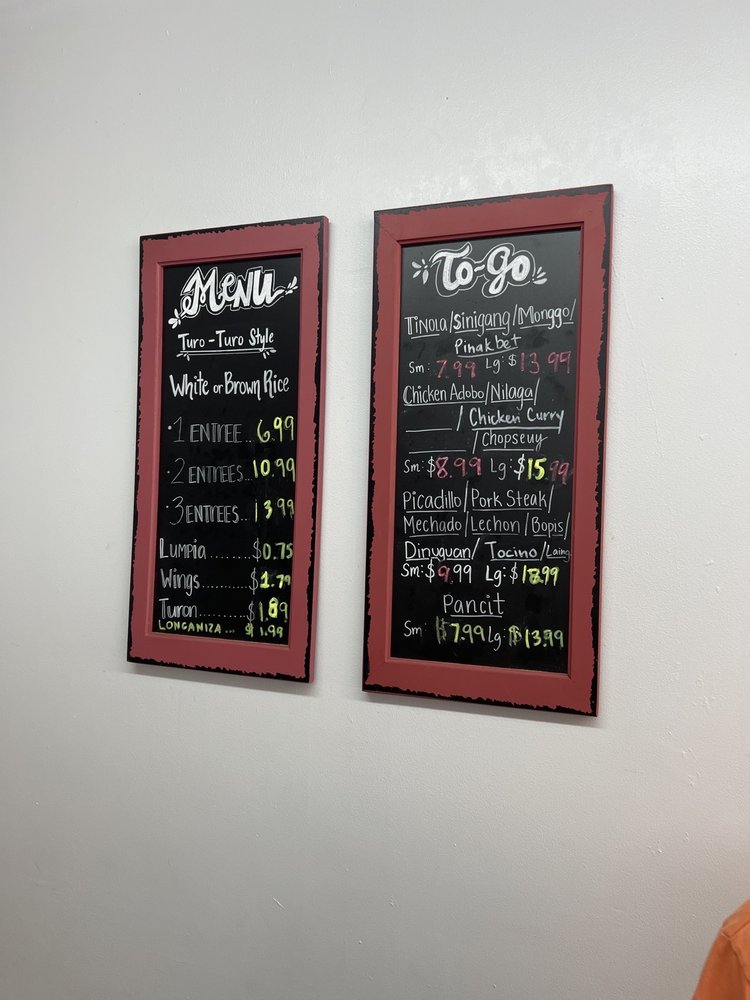 Menu
Turo-Turo Style
White or Brown Rice
·1 Entree... 6.99
·2 Entrees... 10.99
·3 Entrees... 13.99
Lumpia........$0.75
Wings..........$1.79
Turon..........$1.89
LONGANIZA... $1.99
To-Go
Tinola/Sinigang/Monggo/
Pinakbet
Sm: 7.99 Lg: $13.99
Chicken Adobo/Nilaga/
/ Chicken Curry
/Chopseuy
Sm: $8.99 Lg: $15.99
Picadillo/Pork Steak/
Mechado/Lechon/Bopis/
Dinuguan/ Tocino/Laing
Sm: $9.99 Lg: $18.99
Pancit
Sm: $7.99 Lg: $13.99